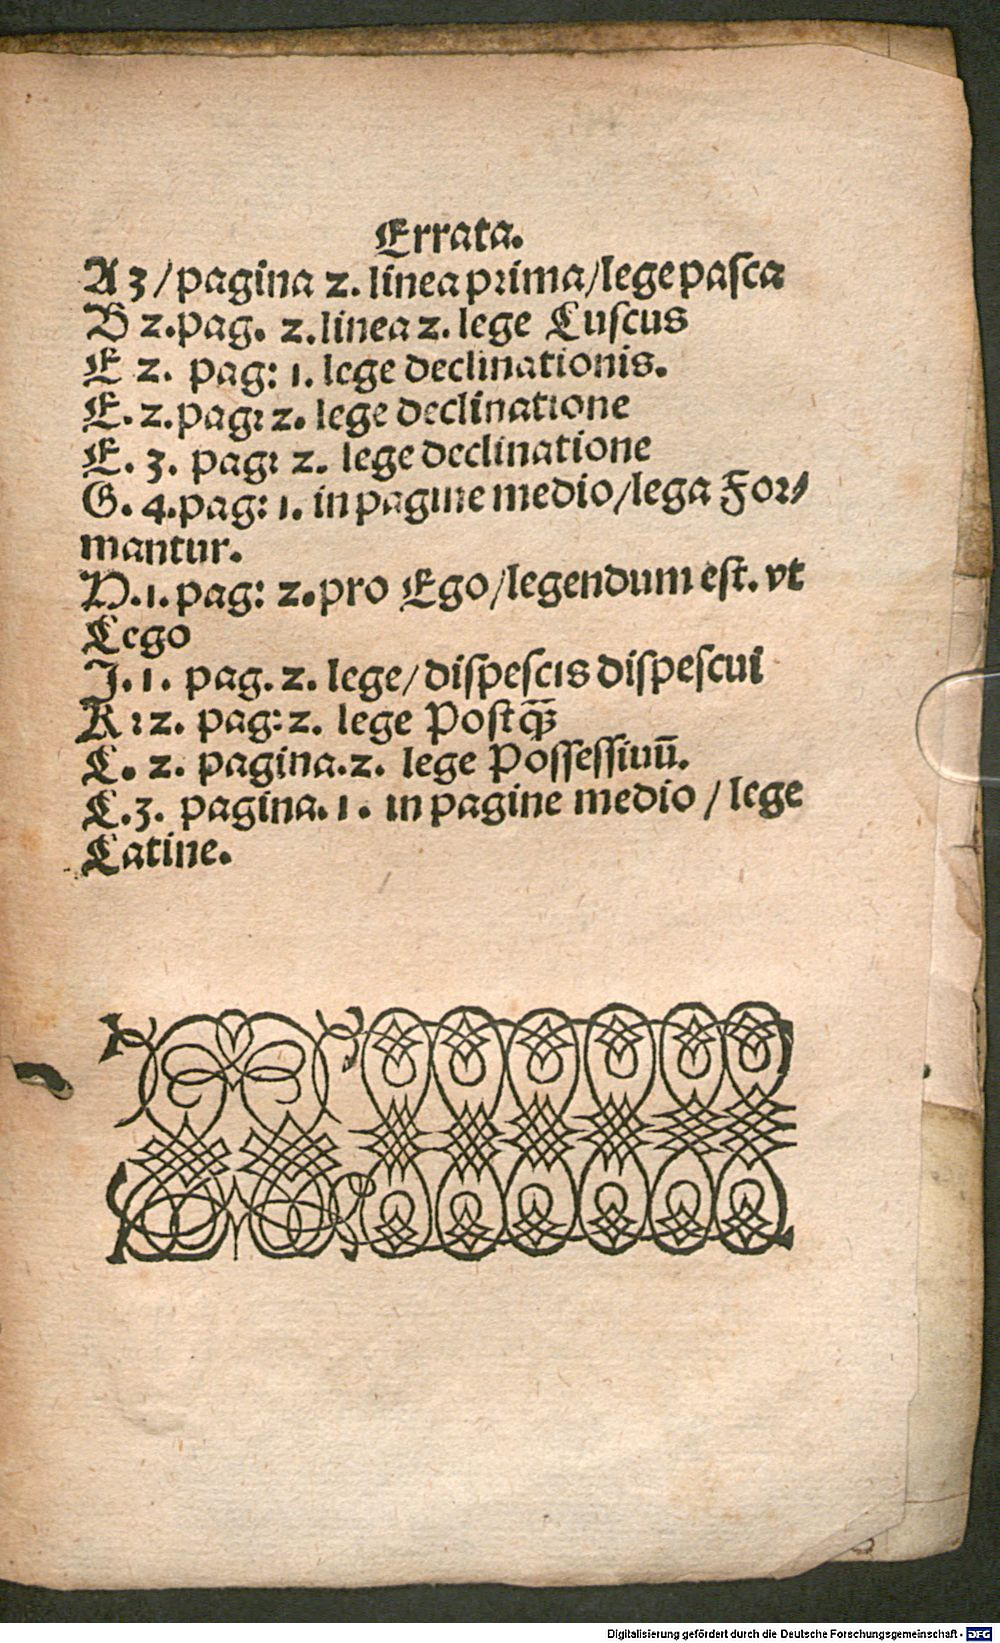 Errata.
A 3/pagina 2. linea prima/lege pasca
B 2.pag. 2.linea 2. lege Luscus
E 2. pag: 1. lege declinationis.
E. 2.pag: 2. lege declinatione
E. 3. pag: 2. lege declinatione
G. 4.pag: 1. in pagine medio/lega For⸗
mantur.
D.1.pag: 2.pro Ego/legendum est. vt
Lego
J.1. pag. 2. lege/dispescis dispescui
K:2. pag:2. lege Postq̄ꝫ
L. 2. pagina.2. lege Possessiuū.
L.3. pagina.1. in pagine medio / lege
Latine.
Digitalisierung gefördert durch die Deutsche Forschungsgemeinschaft - DFG